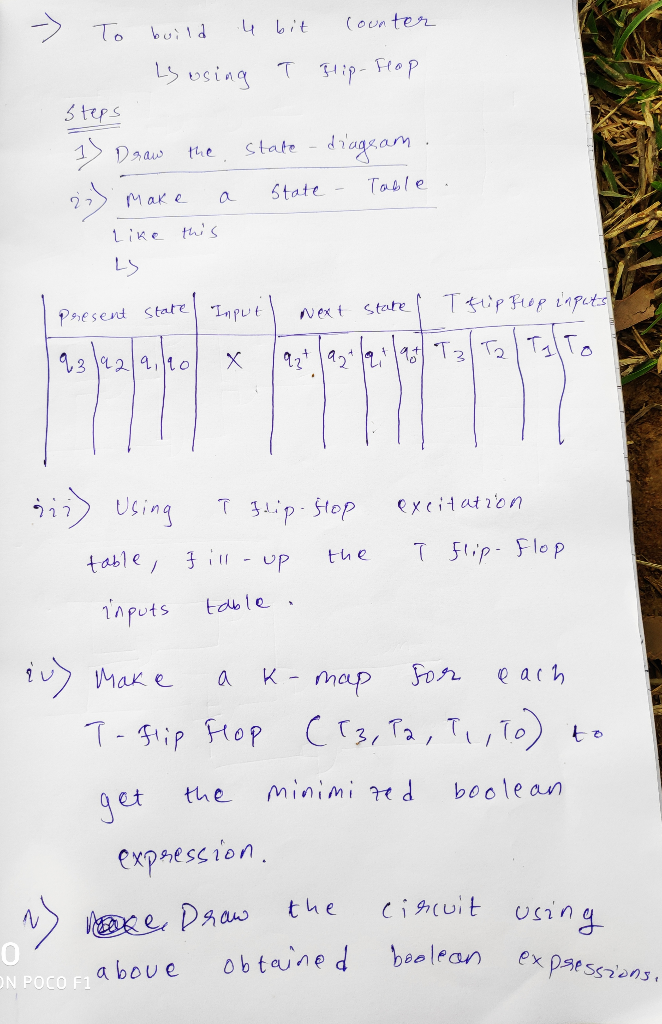 → To build 4 bit Counter
↳ using T Flip-Flop
Steps
i) Draw the state-diagram.
ii) Make a State-Table.
Like this
↳
Present state | Input | Next state | T flip Flop inputs
q3 | q2 | q1 | q0 | X | q3+ | q2+ | q1+ | q0+ | T3 | T2 | T1 | T0
iii) Using T Flip-flop excitation
table, fill-up the T flip-Flop
inputs table.
iv) Make a K-map For each
T-Flip Flop (T3, T2, T1, T0) to
get the minimized boolean
expression.
v) Draw the circuit using
above obtained boolean expressions.
ON POCO F1